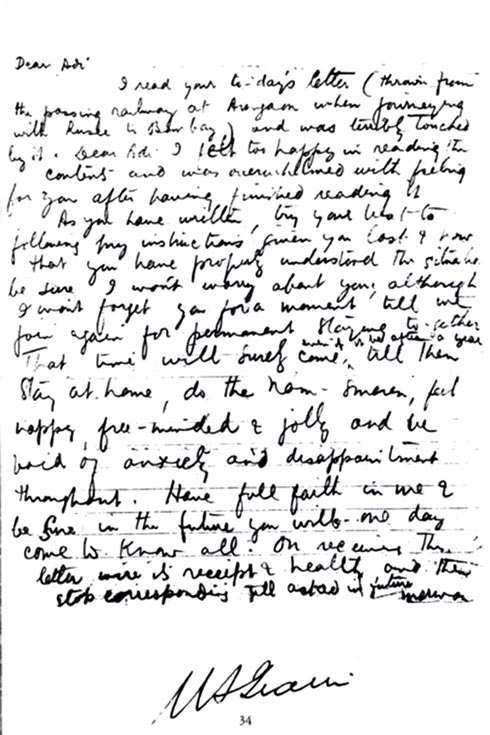 Dear Adi
I read your to-day's letter (thrown from
the passing railway at Arangaon when journeying
with Rusie to Bombay) and was terribly touched
by it. Dear Adi I felt too happy in reading the
content and was overwhelmed with feeling
for you after having finished reading it
As you have written, try your best to
following my instructions, given you last & now
that you have properly understood the situation
be sure I won't worry about you, although
I wont forget you for a moment till we
join again for permanent staying to-gether
That time will surely come, after a year till then
Stay at home, do the Nam-Smaren, feel
happy, free-minded & jolly and be
void of anxiety and disappointment
throughout. Have full faith in me &
be sure in the future you will one day
come to know all. On receiving this
letter wire its receipt & health and then
stop corresponding till asked in future
Merwan
34